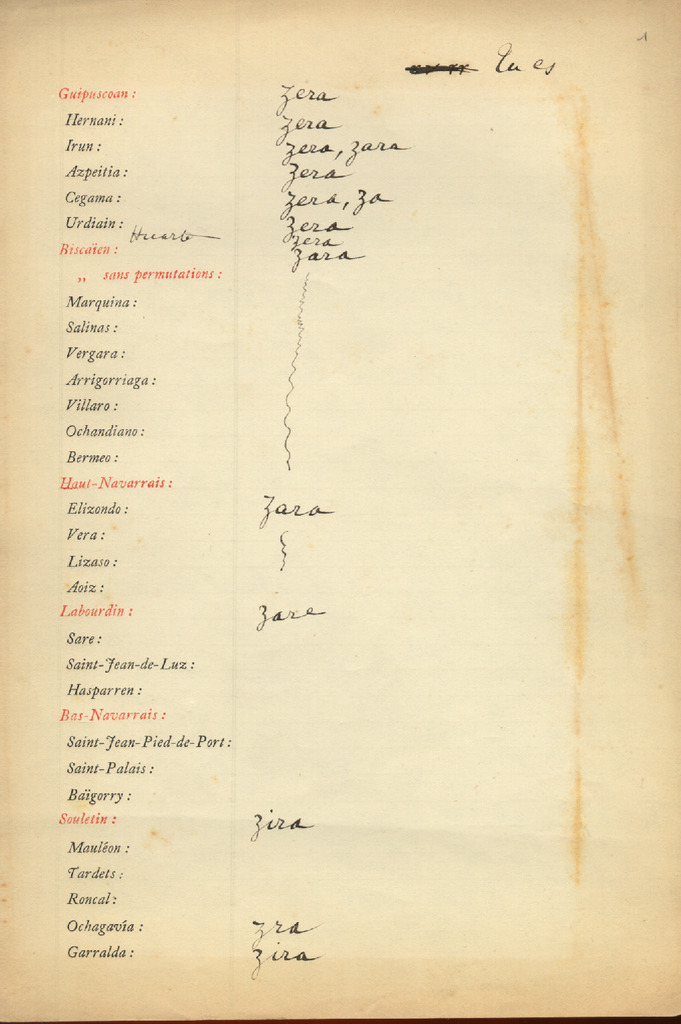 1
Tu es
Guipuscoan : zera
Hernani : zera
Irun : zera, zara
Azpeitia : zera
Cegama : zera, za
Urdiain : zera
Huarte zera
Biscaïen : zara
„ sans permutations :
Marquina :
Salinas :
Vergara :
Arrigorriaga :
Villaro :
Ochandiano :
Bermeo :
Haut-Navarrais :
Elizondo : zara
Vera :
Lizaso :
Aoiz :
Labourdin : zare
Sare :
Saint-Jean-de-Luz :
Hasparren :
Bas-Navarrais :
Saint-Jean-Pied-de-Port :
Saint-Palais :
Baïgorry :
Souletin : zira
Mauléon :
Tardets :
Roncal :
Ochagavía : zra
Garralda : zira